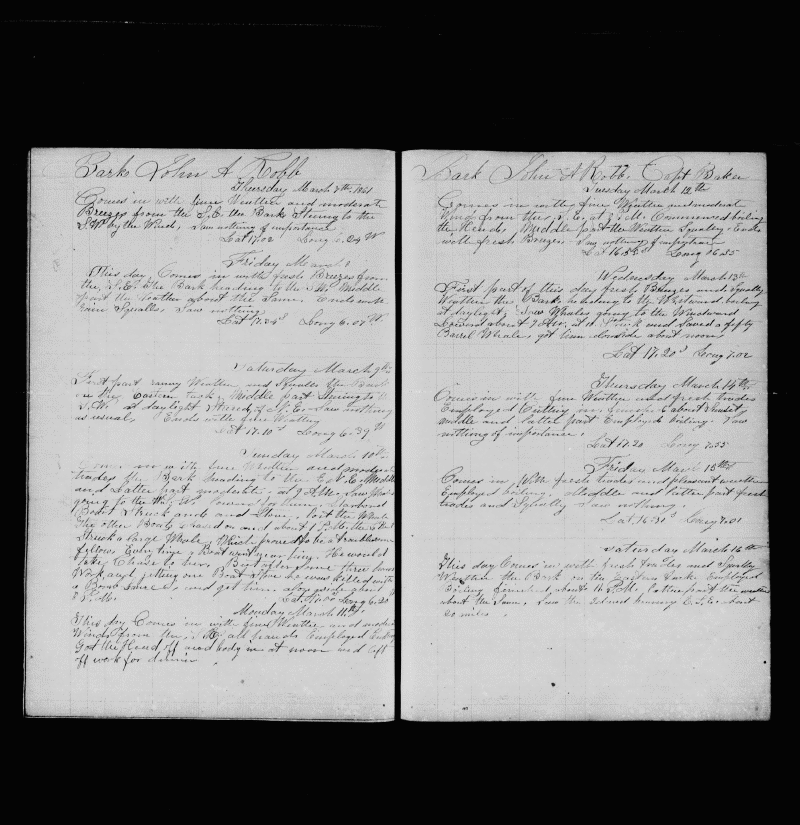 Bark John A Robb
Thursday March 7th, 1861
Comes in with fine Weather and moderate
Breezes from the S.E. the Bark Steering to the
S.W. by the Wind, Saw nothing of importance
Lat 17.02 Long 6.24 W
Friday March
This day Comes in with fresh Breezes from
the S.E. the Bark heading to the S.W. Middle
part the Weather about the Same. Ends with
rain Squalls. Saw nothing
Lat 17.24 Long 6.07
Saturday March 9th
First part rainy Weather and Squales the Bark
on the Eastern tack, Middle part Steering to
S.W. at daylight S.E. Saw nothing
as usual, Ends with fine Weather
Lat 17.10 Long 6.39 W
Sunday March 10th
Comes in with fine Weather and moderate
trades the Bark heading to the Middle
and Latter part moderate, at 7 A.M. Saw Whales
going to the Lowered for them Starboard
Boat Struck and Stove, Lost the Whale
the other Boats chased on and about 1 P.M. the
Struck a large Whale, Which proved to be a troublesome
fellow Every time a Boat went near him, He would
take Chase to her, But after some three hours
Work and getting one Boat Stove he was killed with
a Bomb Lance and got him along side about
P.M. Lat 17.00 Long 6.20
Monday March 11th
This day Comes in with fine Weather and moderate
Winds from the S.E. all hands Employed Cutting
Got the Head off and body in at noon and left
off work for dinner
Bark John A Robb, Capt Baker
Tuesday March 12th
Comes in with fine Weather and moderate
Wind from the S.E. at 3 P.M. Commenced boiling
the Head, Middle part the Weather Squally, Ends
with fresh Breezes. Saw nothing of importance
Lat 16.54 Long 6.55
Wednesday March 13th
First part of this day fresh Breezes and Squally
Weather the Bark heading to the Westward boiling
at daylight, Saw Whales going to the Windward
Lowered about 7 A.M. at 10 Struck and Saved a fifty
Barrel Whale, got him alongside about noon
Lat 17.20 Long 7.02
Thursday March 14th
Comes in with fine Weather and fresh trades
Employed Cutting in, finished about Sunset,
middle and latter part Employed boiling. Saw
nothing of importance.
Lat 17.20 Long 7.55
Friday March 15th
Comes in With fresh trades and pleasant weather
Employed boiling. Middle and latter part fresh
trades and Squally Saw nothing.
Lat. 16.31 Long 7.01
Saturday March 16th
This day Comes in with fresh trades and Squally
Weather the Bark on the Eastern tack. Employed
Boiling finished about 10 P.M. Latter part the weather
about the Same, Saw the Island bearing E.S.E. distant
20 miles.